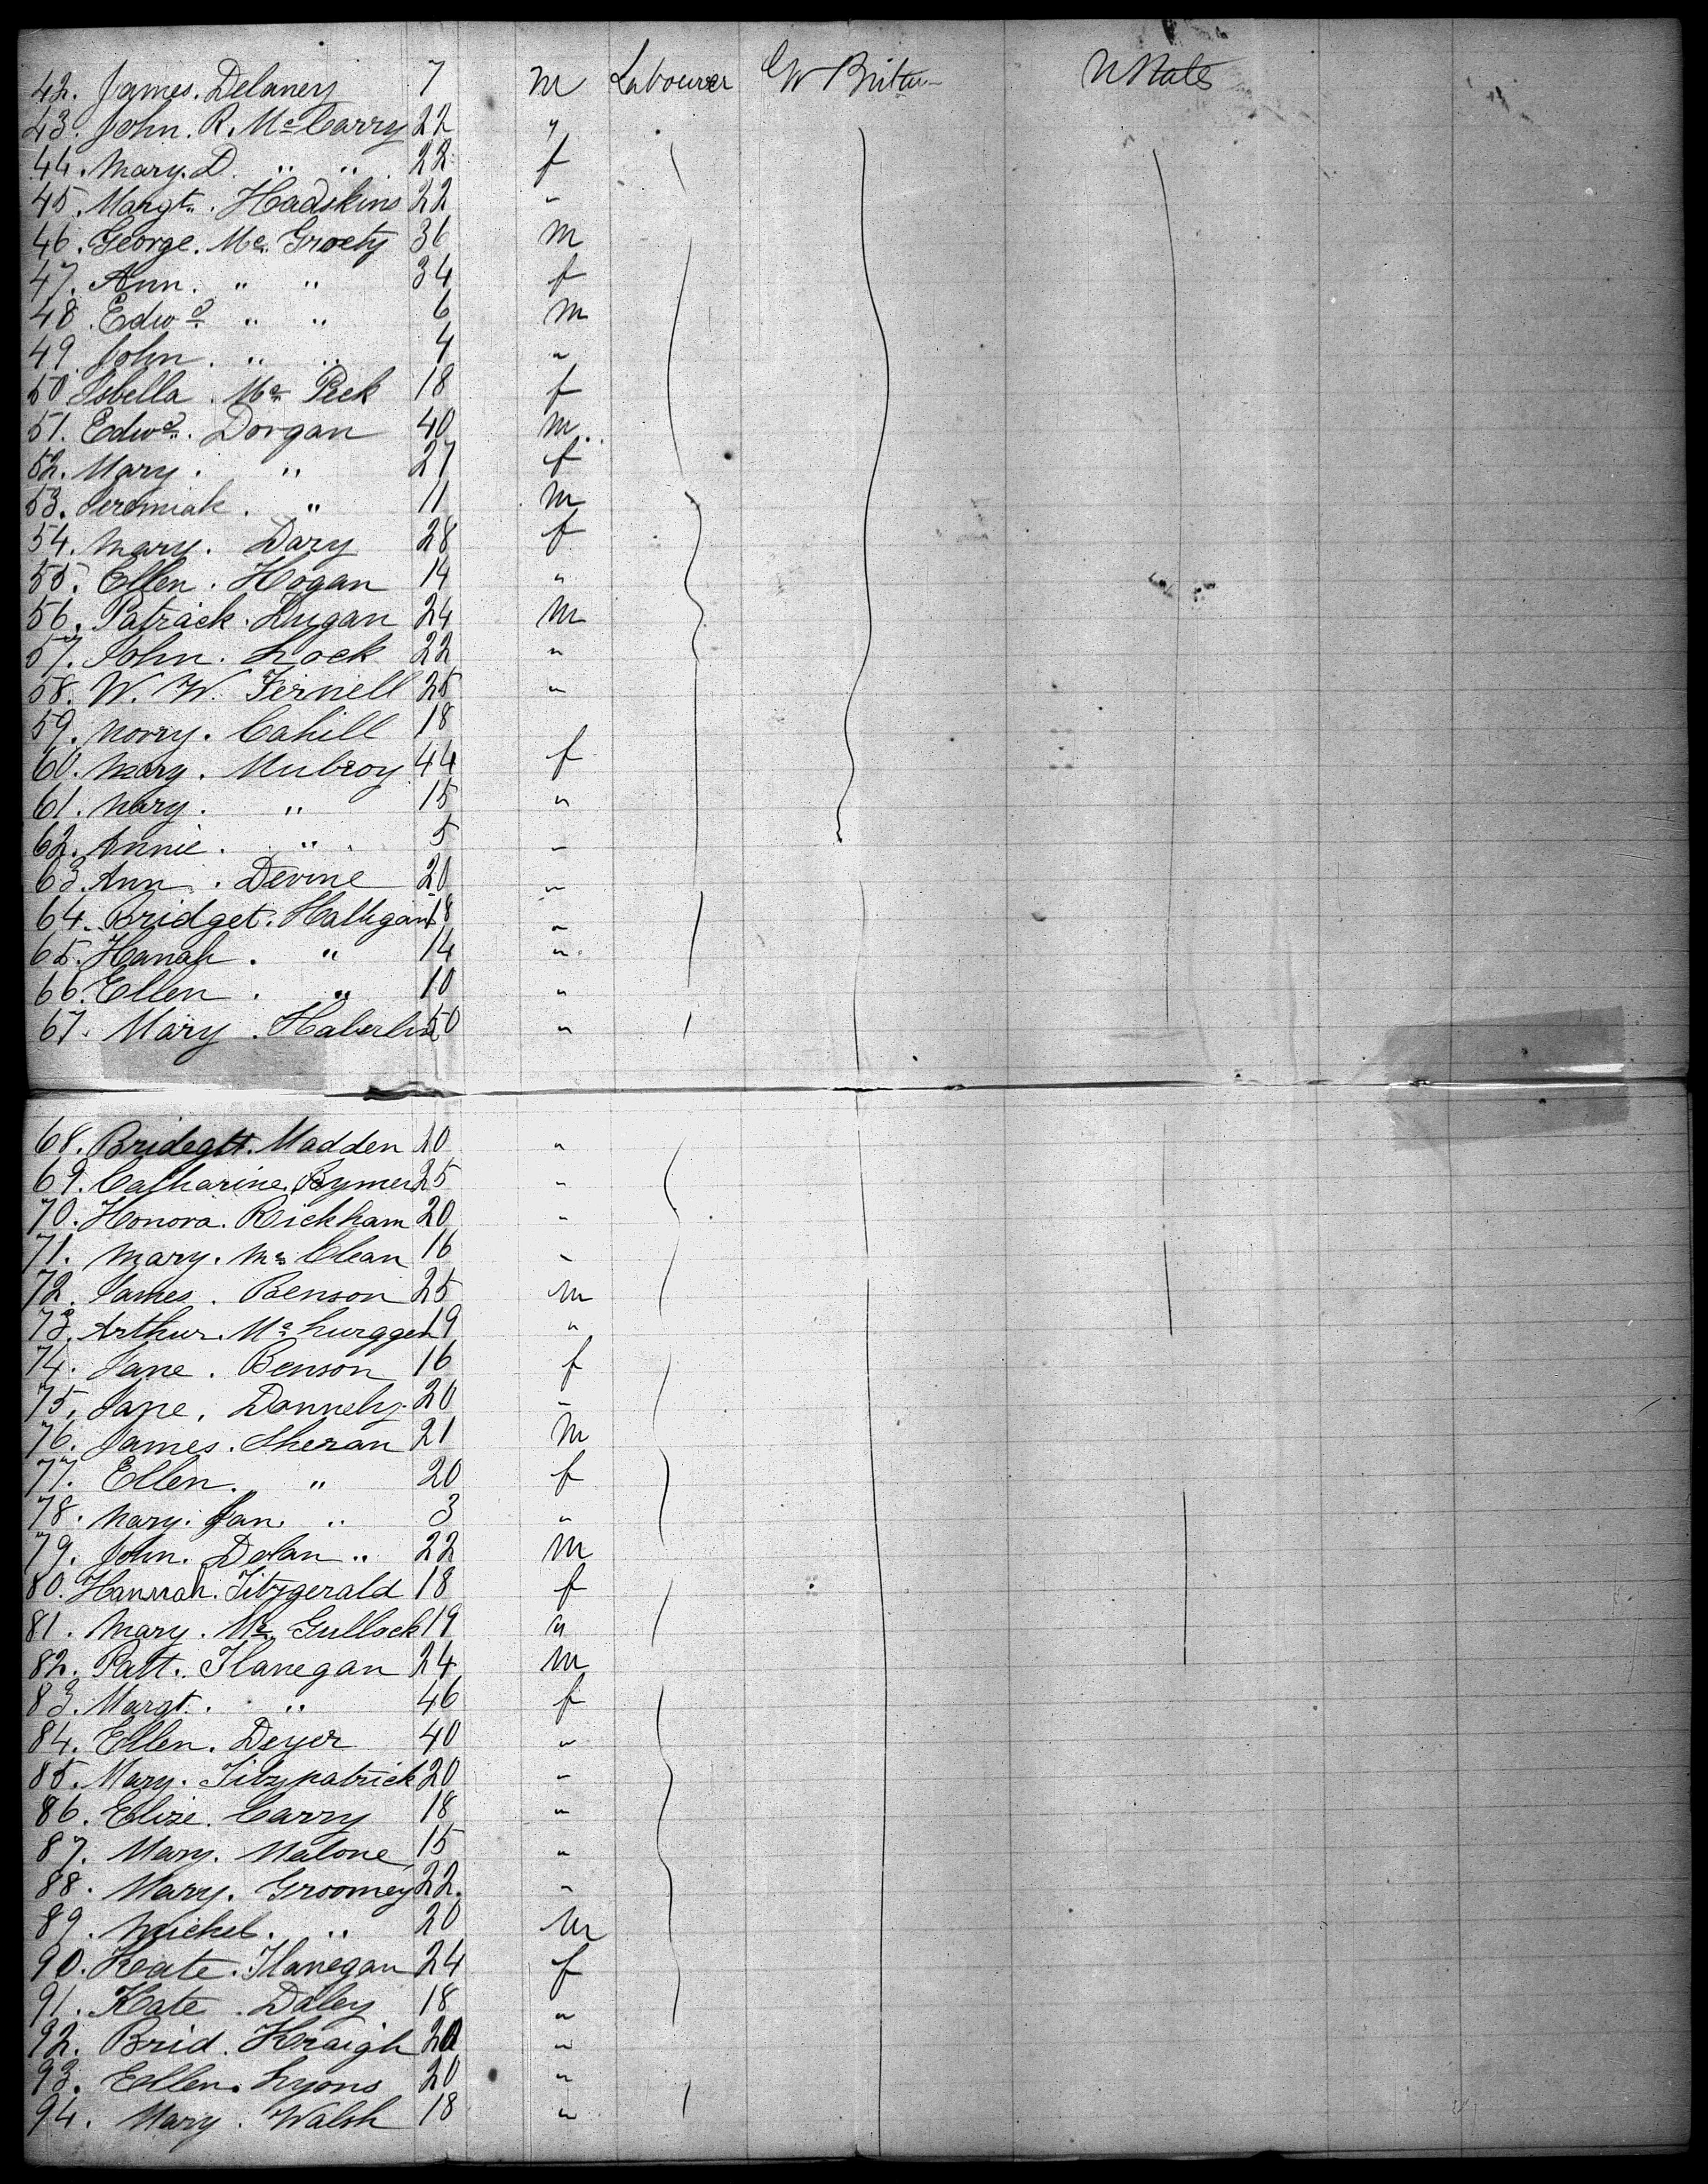 42. James. Delaney 7 m Labourer Gt Britain U States
43. John. R. Mc Carry 22 "
44. Mary. D. " " 22 f
45. Margt. Hadskins 22 "
46. George. Mc. Groety 36 m
47. Ann. " " 34 f
48. Edwd " " 6 m
49. John. " " 4 "
50 Isbella. Mc Peek 18 f
51. Edwd. Dorgan 40 m
52. Mary. " 27 f
53. Jeremiah. " 11 m
54. Mary. Dary 28 f
55. Ellen. Hogan 14 "
56. Patrack. Dugan 24 m
57. John. Lock 22 "
58. W. W. Fernell 25 "
59. Norry. Cahill 18
60. Mary. Mulroy 44 f
61. Mary. " 15 "
62. Annie. " 5 "
63. Ann. Devine 20 "
64. Bridget. Halligan 18 "
65. Hanah. " 14 "
66. Ellen. " 10 "
67. Mary. Haberlin 50 "
68. Bridegtt. Madden 20 "
69. Catharine. Rymer 25 "
70. Honora. Rickham 20 "
71. Mary. Mc Clean 16 "
72. James. Benson 25 m
73. Arthur. Mc Lurggen 19 "
74. Jane. Benson 16 f
75. Jane. Dannehy 20 "
76. James. Sheran 21 m
77. Ellen. " 20 f
78. Mary. Jan. " 3 "
79. John. Dolan " 22 m
80. Hannah. Fitzgerald 18 f
81. Mary. Mc Gullock 19 "
82. Patt. Flanegan 24 m
83. Margt. " 46 f
84. Ellen. Deyer 40 "
85. Mary. Fitzpatrick 20 "
86. Elize. Carry 18 "
87. Mary. Malone 15 "
88. Mary. Groomey 22. "
89. Michel. " 20 m
90. Keate. Flanegan 24 f
91. Kate. Daley 18 "
92. Brid. Kraigh 20 "
93. Ellen. Lyons 20 "
94. Mary. Walsh 18 "